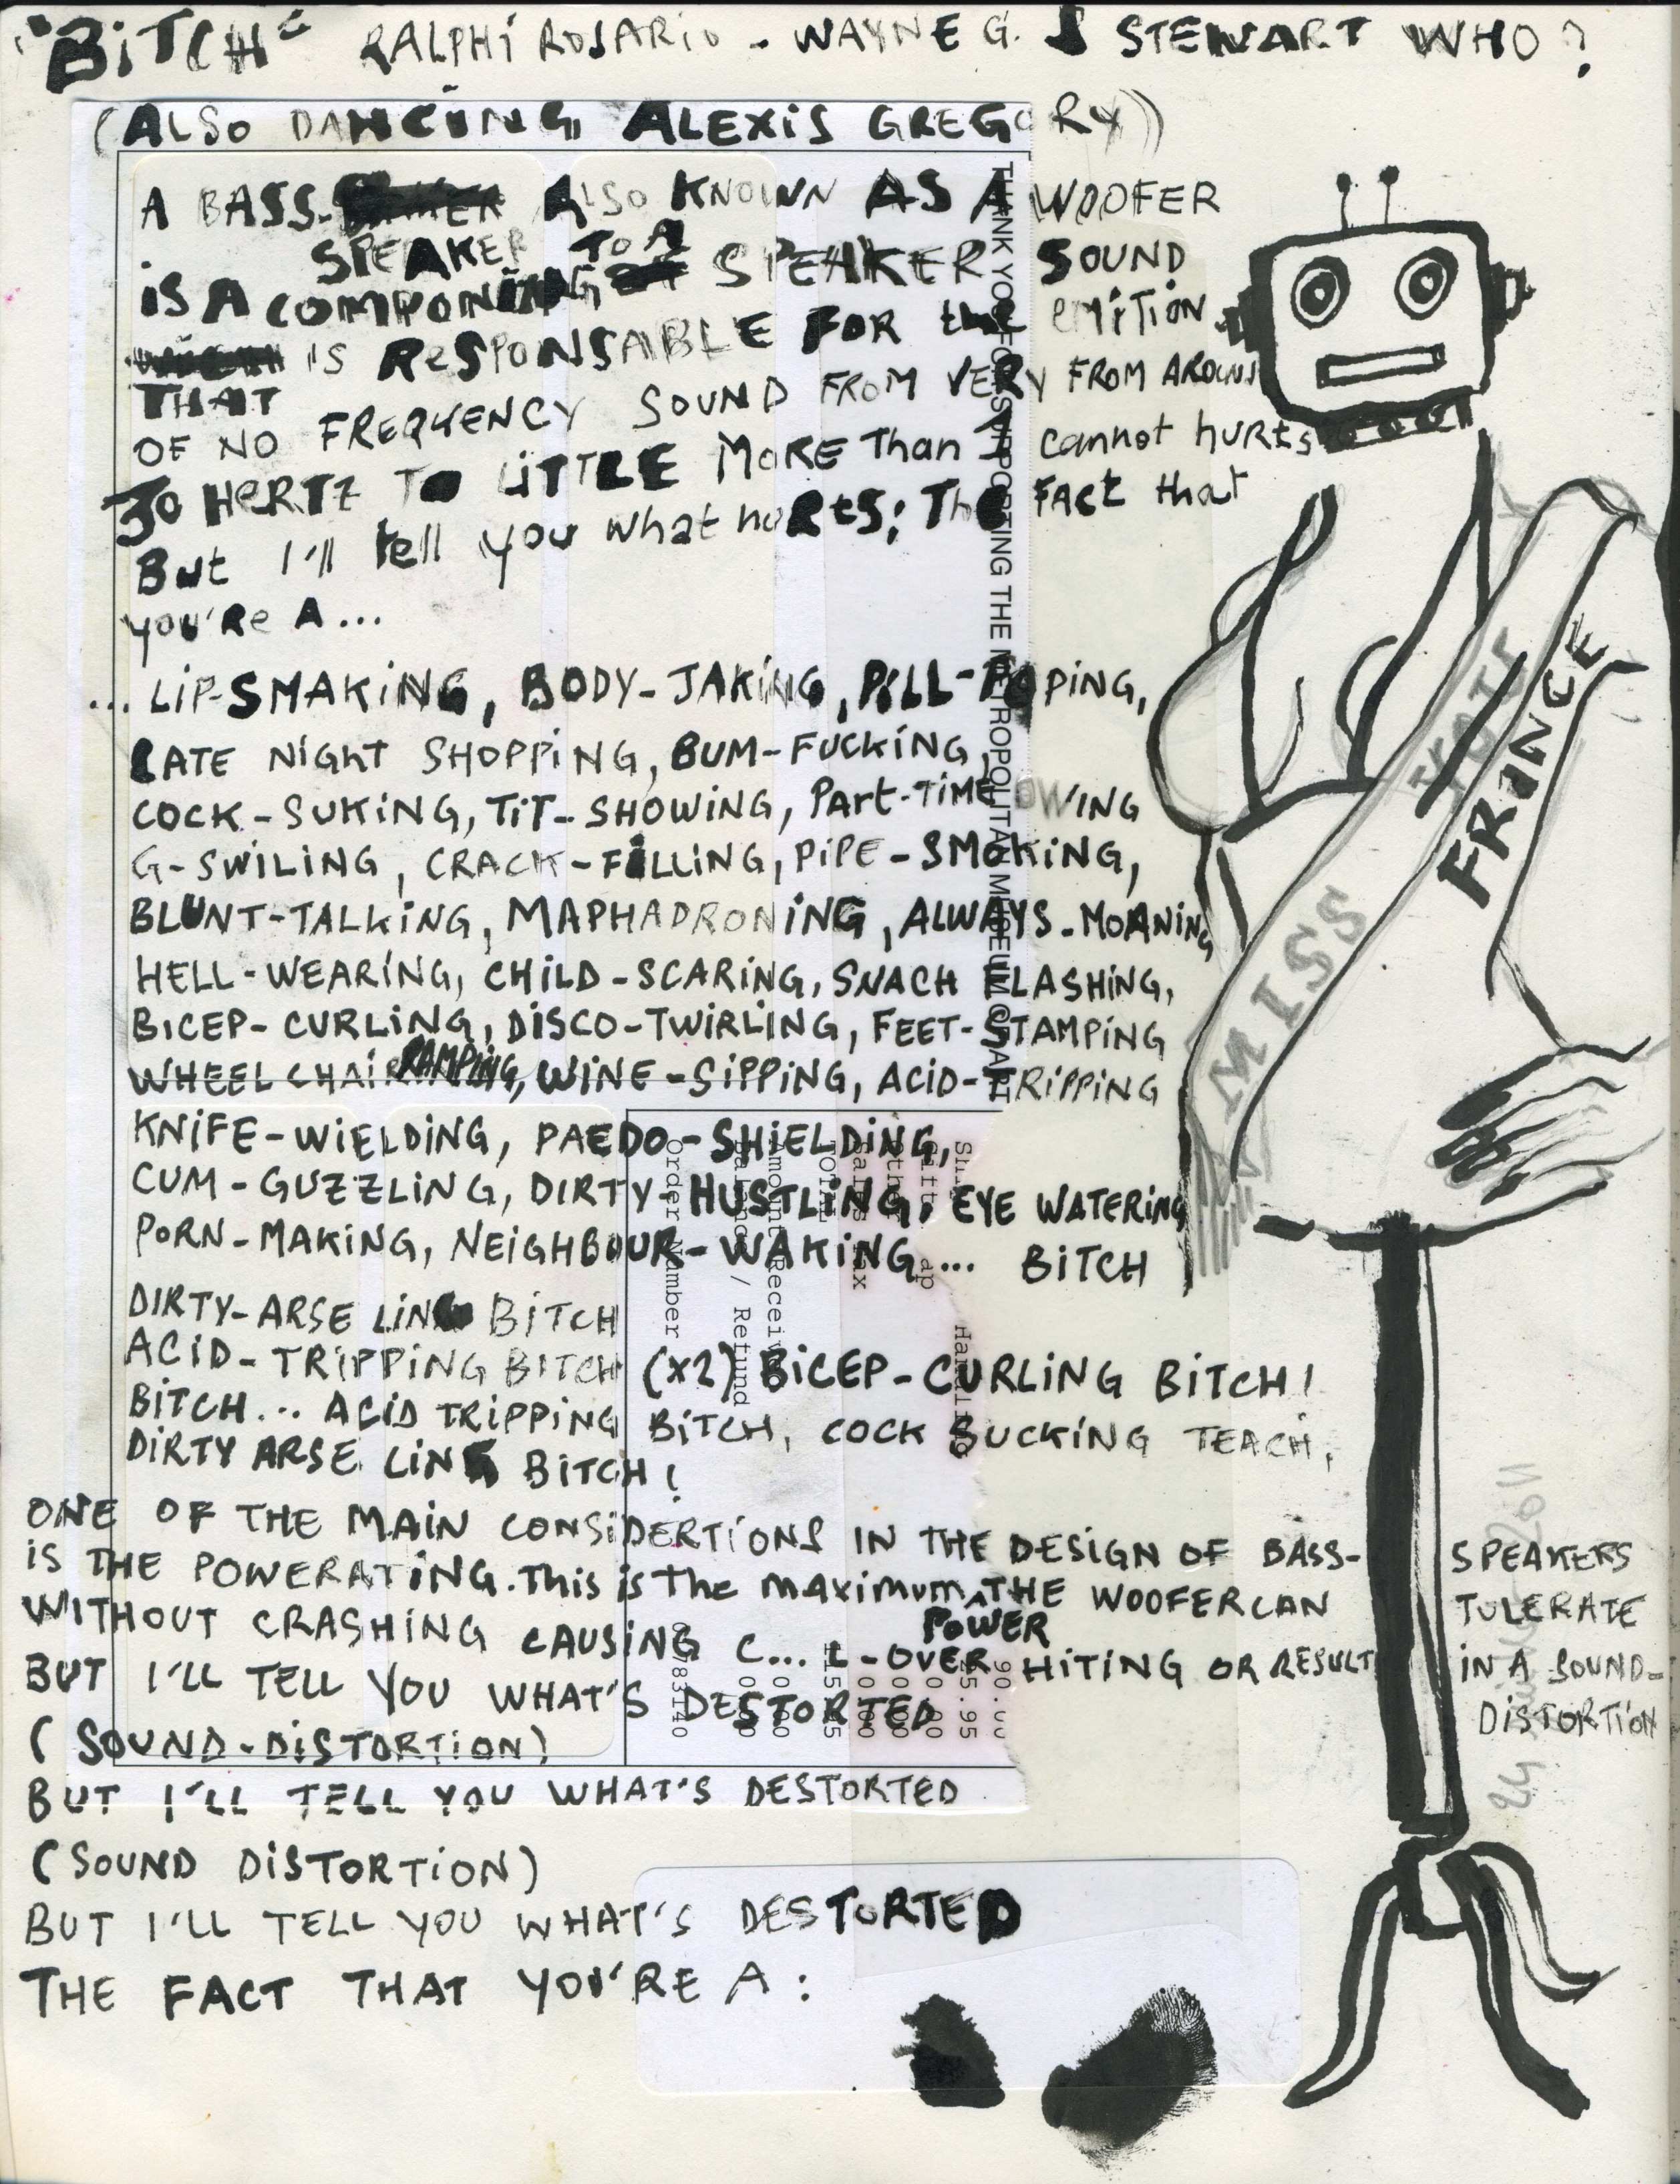 "BiTCH" RALPHi ROSARiO - WAYNE G. & STEWART WHO?
(ALSO DANCiNG ALEXiS GREGORY)
A BASS- ALSO KNOWN AS A WOOFER
SPEAKER TO A
iS A COMPONiNG SPEAKER SOUND
IS RESPONSABLE FOR the EMiTiON
THAT
OF NO FREQUENCY SOUND FROM VERY FROM AROUND
30 HERTZ TO LiTTLE MORE Than cannot hurts
But I'll tell you what horts; The FACt that
you're A...
... LiP-SMAKiNG, BODY-JAKiNG, PiLL-POPiNG,
LATE NiGHT SHOPPiNG, BUM-FUCKiNG,
COCK-SUKiNG, TiT-SHOWiNG, PArt-TiME WiNG
G-SWiLiNG, CRACK-FiLLiNG, PiPE-SMOKiNG,
BLUNT-TALKiNG, MAPHADRONiNG, ALWAYS-MOANiNG
HELL-WEARiNG, CHiLD-SCARiNG, SNACH FLASHiNG,
BICEP-CURLiNG, DiSCO-TWiRLiNG, FEET-STAMPiNG
WHEELCHAIR RAMPiNG, WiNE-SiPPiNG, ACiD-TRiPPiNG
KNiFE-WiELDiNG, PAEDO-SHiELDiNG,
CUM-GUZZLiNG, DiRTY-HUSTLiNG, EYE WATERiNG
PORN-MAKiNG, NEiGHBOUR-WAKiNG... BiTCH
DiRTY-ARSE LiNG BiTCH
ACiD-TRiPPiNG BITCH (x2) BiCEP-CURLiNG BiTCH!
BiTCH... ACiD TRiPPiNG BiTCH, COCK SUCKiNG TEACH,
DiRTY ARSE LiNG BiTCH!
ONE OF THE MAiN CONSiDERTiONS IN THE DESiGN OF BASS- SPEAKERS
iS THE POWERATiNG. This is the maximum THE WOOFER CAN TULERATE
POWER
WiTHOUT CRASHiNG CAUSiNG C... L-OVER HiTiNG OR RESULT iN A SOUND-
DiSTORTiON
BUT I'LL TELL YOU WHAT'S DESTORTED
(SOUND-DiSTORTiON)
BUT I'LL TELL YOU WHAT'S DESTORTED
(SOUND DiSTORTiON)
BUT I'LL TELL YOU WHAT'S DESTORTED
THE FACT THAT YOU'RE A:
MISS
FRANCE
THANK YOU FOR SUPPORTING THE METROPOLITAN MUSEUM OF ART
Sales Tax
TOTAL
Amount Received
Balance / Refund
Order Number